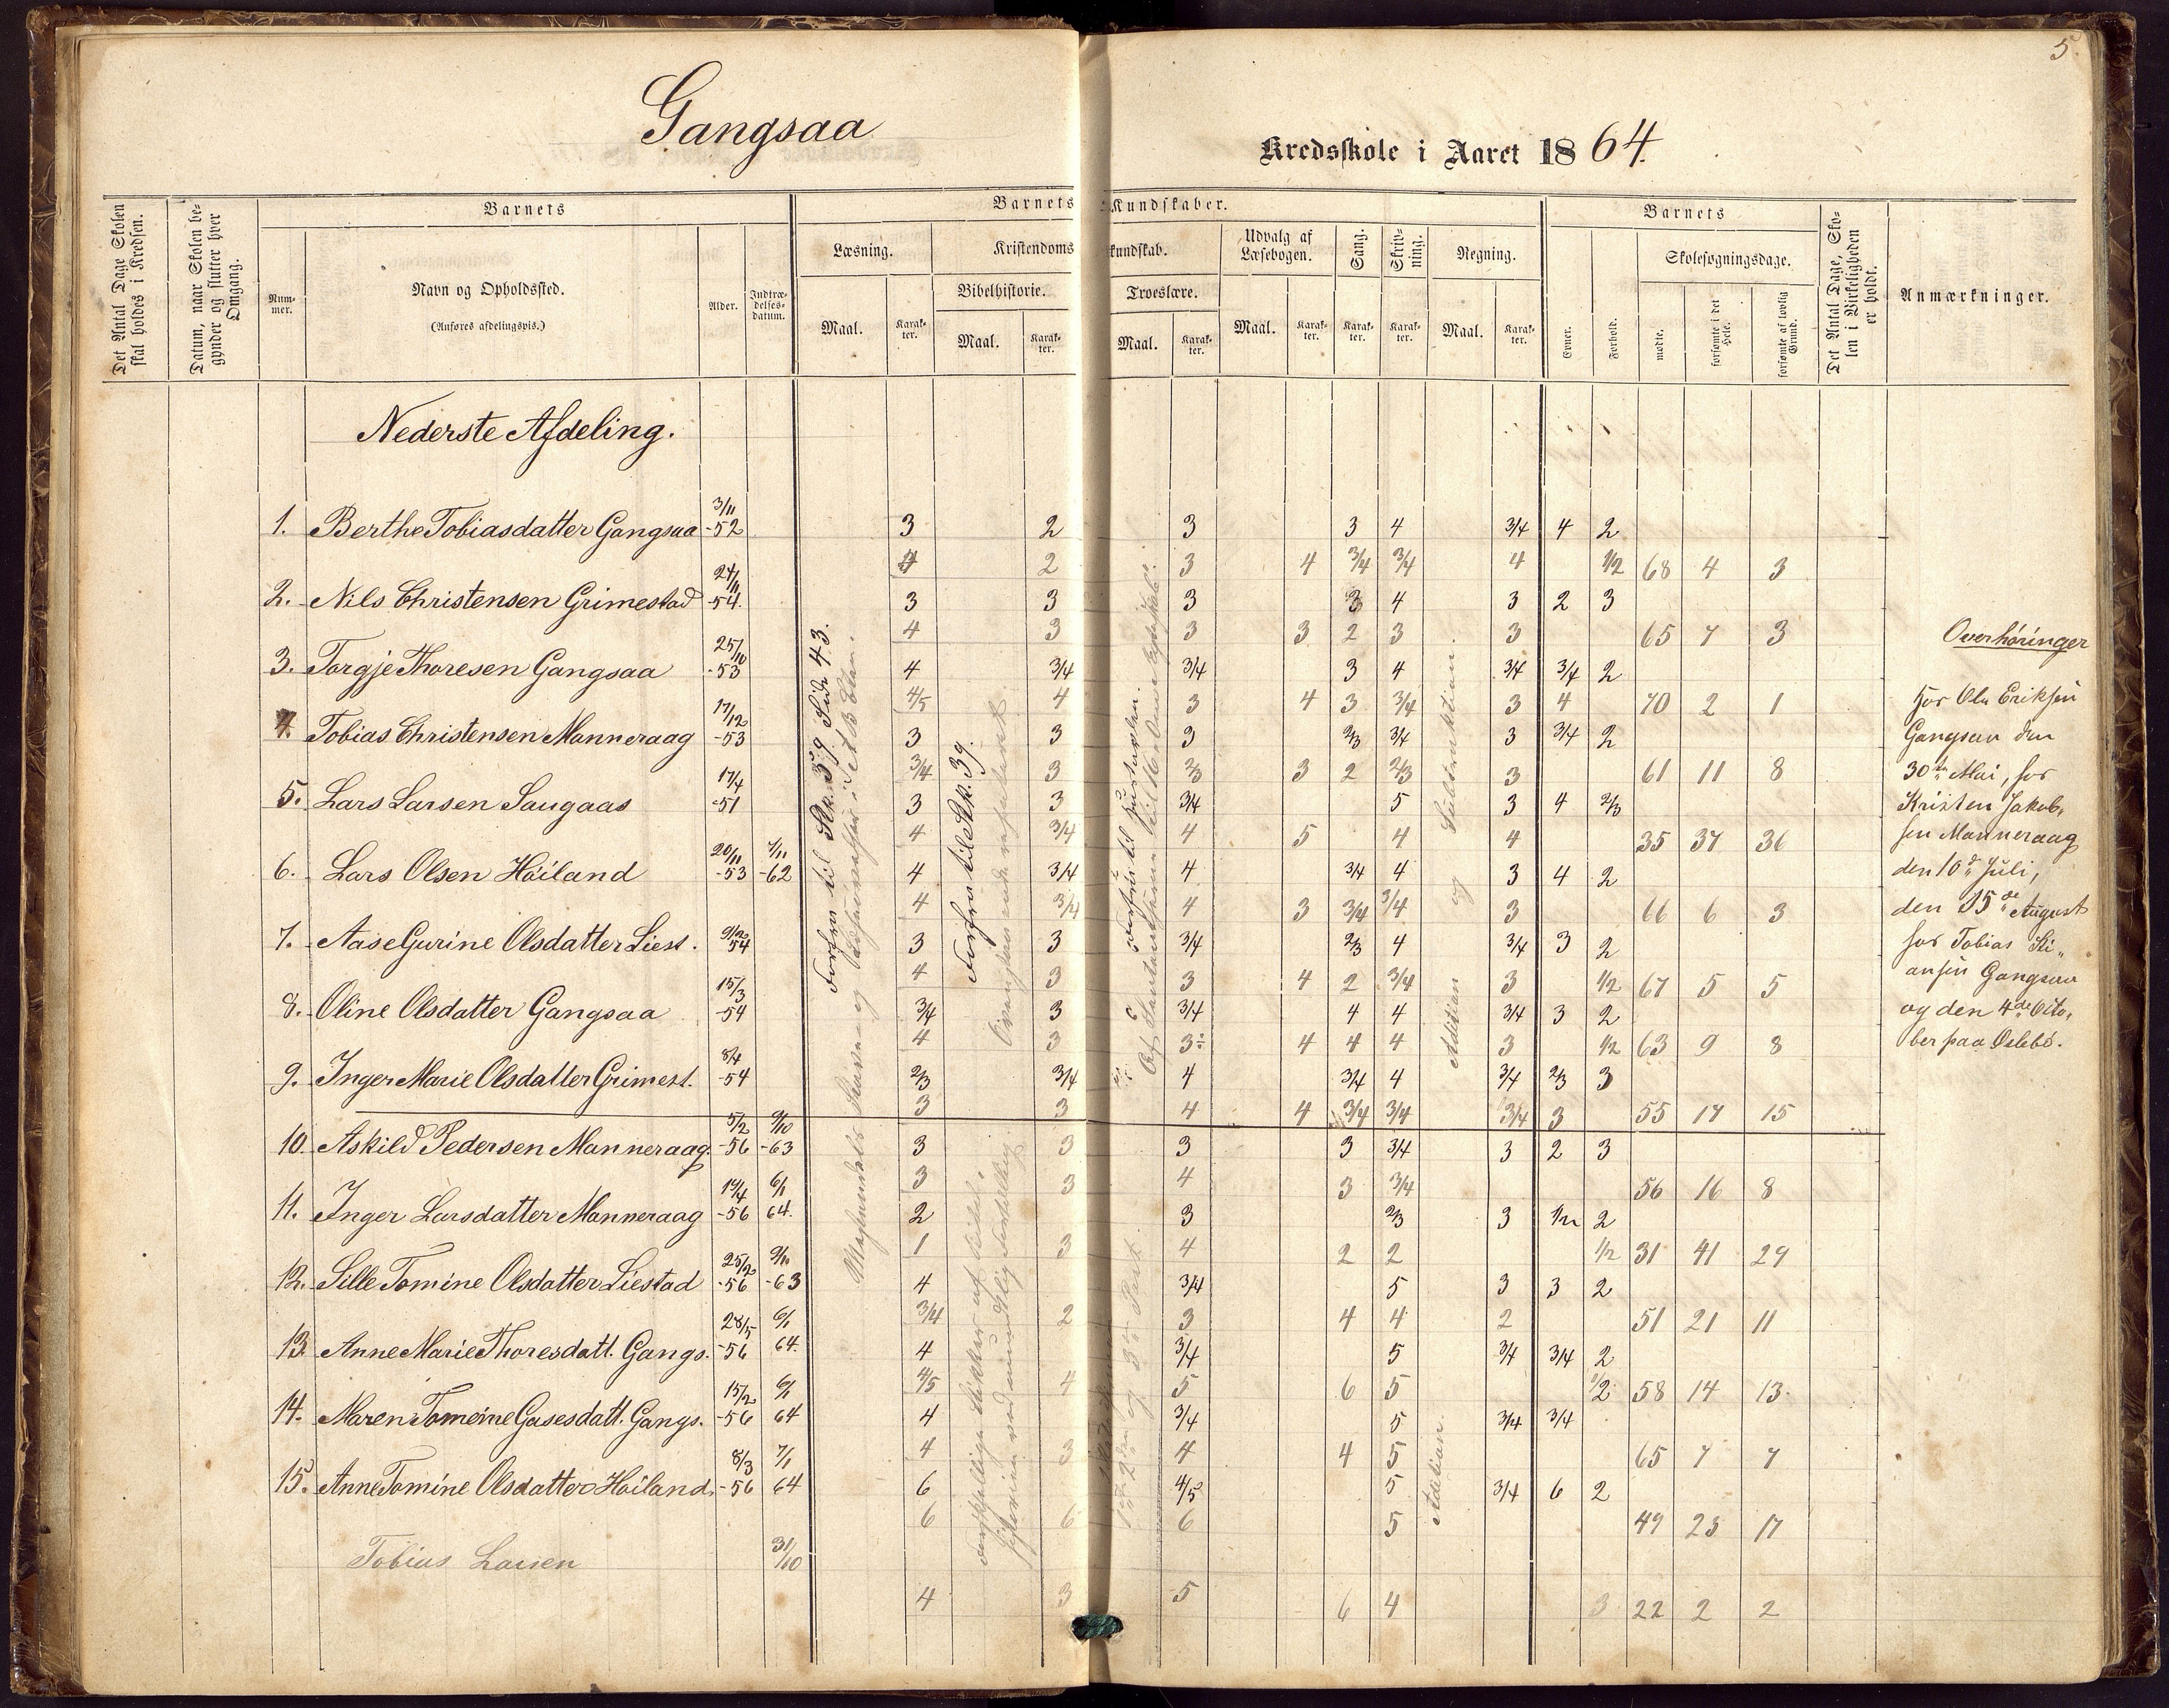 5.
Gangsaa
Kredsskole i Aaret 1864.
Det Antal Dage Skolen skal holdes i Kredsen.
Datum, naar Skolen begynder og slutter hver Omgang.
Barnets
Barnets Kundskaber.
Barnets
Det Antal Dage, Skolen i Virkeligheden er holdt.
Anmærkninger.
Nummer.
Navn og Opholdssted.
(Anføres afdelingsvis.)
Alder.
Indtrædelsesdatum.
Læsning.
Kristendomskundskab.
Udvalg af Læsebogen.
Sang.
Skrivning.
Regning.
Evner.
Forhold.
Skolesøgningsdage.
Bibelhistorie.
Troeslære.
mødte.
forsømte i det Hele.
forsømte af lovlig Grund.
Maal. Karakter. Maal. Karakter. Maal. Karakter. Maal. Karakter. Karakter. Karakter. Maal. Karakter.
Nederste Afdeling.
1. Berthe Tobiasdatter Gangsaa 3/11 -52 3 2 3 3 4 3/4 4 2
4 2 3 4 3/4 3/4 4 1/2 68 4 3
2. Nils Christensen Grimestad 24/11 -54. 3 3 3 3 4 3 2 3
4 3 3 3 2 3 3 65 7 3
3. Torgje Thoresen Gangsaa 25/10 -53 4 3/4 3/4 3 4 3/4 3/4 2
4/5 4 3 4 3 3/4 3 4 70 2 1
4. Tobias Christensen Manneraag 17/12 -53 3 3 3 2/3 3/4 3 3/4 2
3/4 3 2/3 3 2 2/3 3 61 11 8
5. Lars Larsen Saugaas 17/4 -51 3 3 3/4 5 3 4 2/3
4 3/4 4 5 4 4 35 37 36
6. Lars Olsen Höiland 20/11 -53 7/11 -62 4 3/4 4 3/4 4 3 4 2
4 3/4 4 3 3/4 3/4 3 66 6 3
7. Aase Gurine Olsdatter Liest. 9/12 54 3 3 3/4 2/3 4 3/4 3 2
4 3 3 4 2 3/4 3 1/2 67 5 5
8. Oline Olsdatter Gangsaa 15/3 -54 3/4 3 3/4 4 4 3/4 3 2
4 3 3 4 4 4 3 1/2 63 9 8
9. Inger Marie Olsdatter Grimest. 8/4 -54 2/3 3/4 4 3/4 4 3/4 2/3 3
3 3 4 4 3/4 3/4 3/4 3 55 17 15
10. Askild Pedersen Manneraag. 5/2 -56 9/10 -63 3 3 3 3 3/4 3 2 3
3 3 4 3 3/4 56 16 8
11. Inger Larsdatter Manneraag 19/4 -56 6/1 64. 2 3 2/3 3 1/2 2
1 3 4 2 2 1/2 31 41 29
12. Sille Tomine Olsdatter Liestad 25/12 -56 9/10 -63 4 3/4 5 3 3 2
3/4 2 3 4 4 2 51 21 11
13. Anne Marie Thoresdatt. Gangs. 28/5 -56 6/1 64. 4 3/4 5 3/4 3/4 2
4/5 4 5 6 5 1/2 58 14 13
14. Maren Tomine Gasesdatt. Gangs. 15/2 -56 6/1 64 4 3/4 5 3/4 3/4
4 3 4 4 5 65 7 7
15. Anne Tomine Olsdatter Höiland. 8/3 -56 7/1 64 6 4/5 5 3/4 6 2
6 6 6 5 49 23 17
Tobias Larsen 31/10
4 3 5 6 4 3 22 2 2
Forfra til Stk. 59 Side 43.
Forfra til Stk. 39.
Addition og Subtraktion.
Addition.
Overhöringer
hos Ole Eriksen
Gangsaa den
30te Mai, hos
Kristen Jakob-
sen Manneraag
den 10de Juli,
den 15de August
hos Tobias
Gangsaa
og den 4de Octo-
ber paa Oslebö.